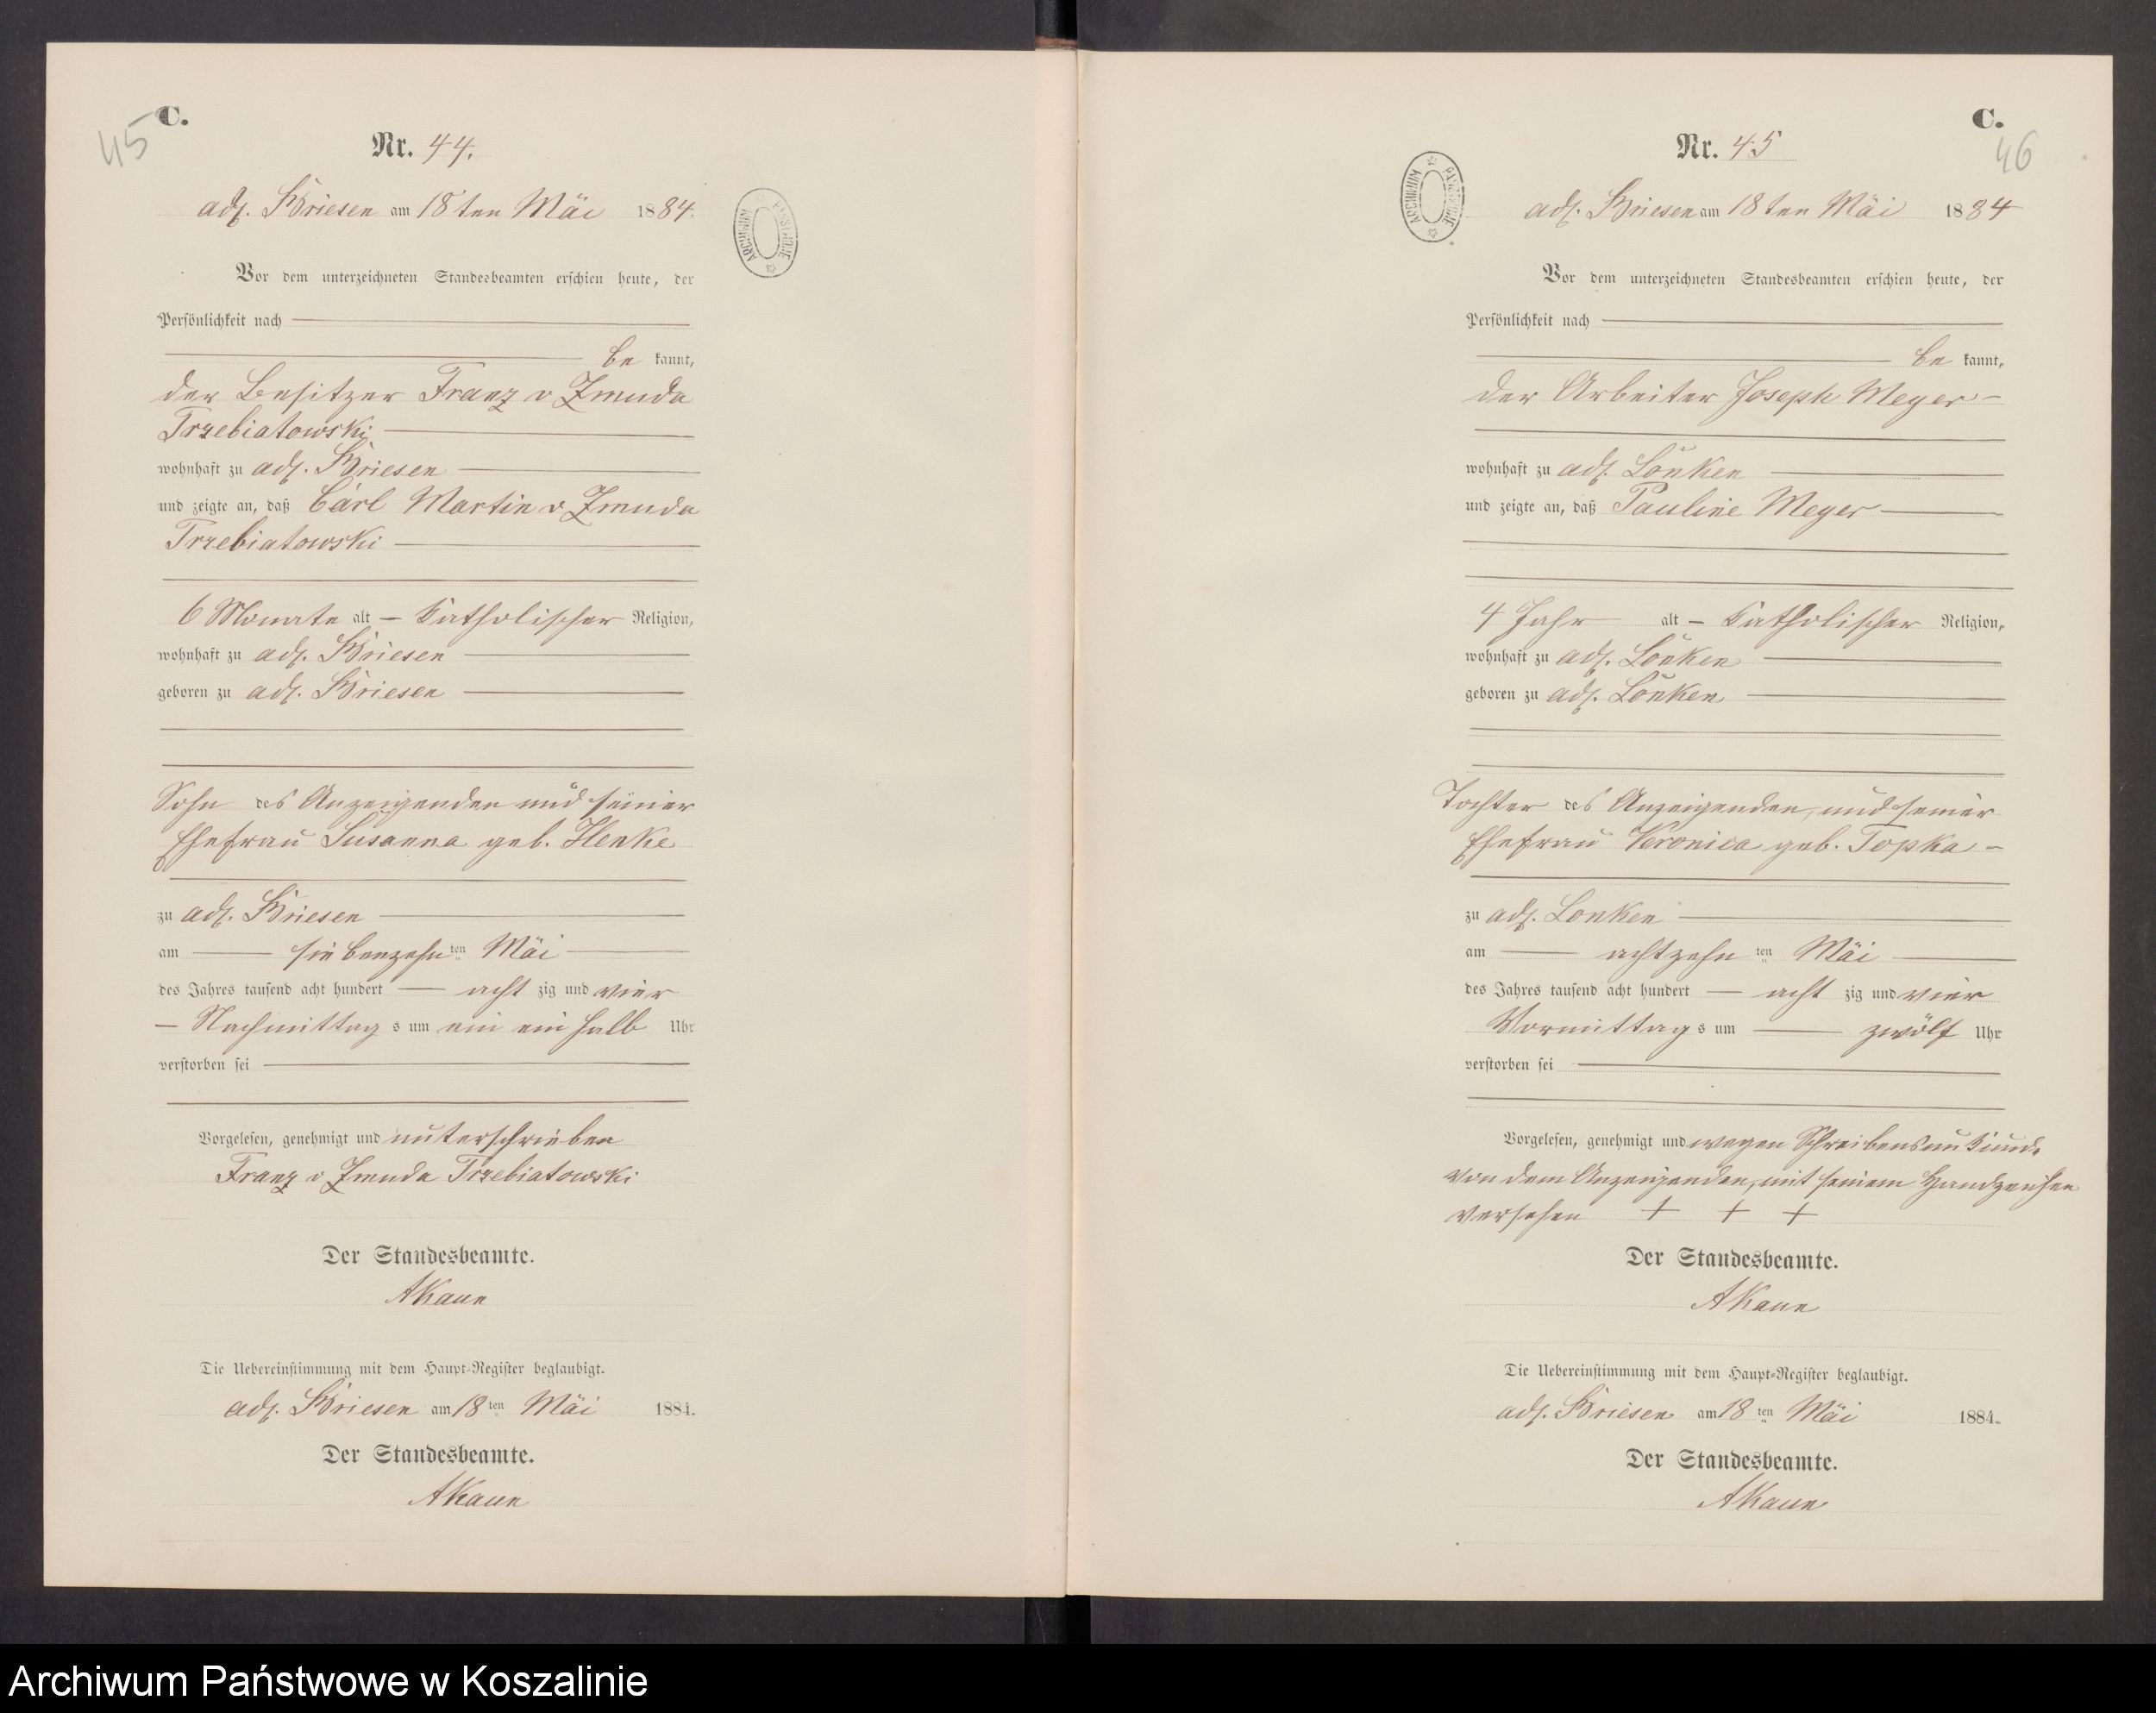 45
C.
Nr. 44.
adl. Briesen am 18ten Mai 1884.
ARCHIWUM PAŃSTWOWE
Vor dem unterzeichneten Standesbeamten erschien heute, der
Persönlichkeit nach
be kannt,
der Besitzer Franz v Zmuda
Trzebiatowski
wohnhaft zu adl. Briesen
und zeigte an, daß Carl Martin v Zmuda
Trzebiatowski
6 Monate alt – katholischer Religion,
wohnhaft zu adl. Briesen
geboren zu adl. Briesen
Sohn des Anzeigenden und seiner
Ehefrau Susanna geb.
zu adl. Briesen
am siebenzehn ten Mai
des Jahres tausend acht hundert acht zig und vier
Nachmittag s um ein ein halb Uhr
verstorben sei
Vorgelesen, genehmigt und unterschrieben
Franz v Zmuda Trzebiatowski
Der Standesbeamte.
AKaun
Die Uebereinstimmung mit dem Haupt-Register beglaubigt.
adl. Briesen am 18 ten Mai 1884.
Der Standesbeamte.
AKaun
C.
46
Nr. 45
adl. Briesen am 18ten Mai 1884
ARCHIWUM PAŃSTWOWE
Vor dem unterzeichneten Standesbeamten erschien heute, der
Persönlichkeit nach
be kannt,
der Arbeiter Joseph Meyer
wohnhaft zu adl. Lonken
und zeigte an, daß Pauline Meyer
4 Jahr alt – katholischer Religion,
wohnhaft zu adl. Lonken
geboren zu adl. Lonken
Tochter des Anzeigenden, und seiner
Ehefrau Veronica geb. Topka
zu adl. Lonken
am achtzehn ten Mai
des Jahres tausend acht hundert acht zig und vier
Vormittag s um zwölf Uhr
verstorben sei
Vorgelesen, genehmigt und wegen Schreibensunkunde
von dem Anzeigenden, mit seinem Handzeichen
versehen + + +
Der Standesbeamte.
AKaun
Die Uebereinstimmung mit dem Haupt-Register beglaubigt.
adl. Briesen am 18 ten Mai 1884.
Der Standesbeamte.
AKaun
Archiwum Państwowe w Koszalinie